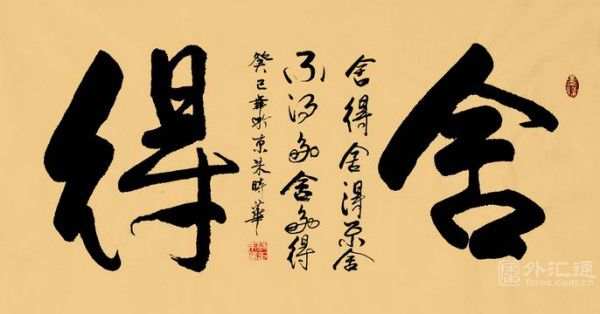 舍得
舍得舍得不舍
不得能舍能得
癸巳年於京朱時華
外汇通
forex.com.cn